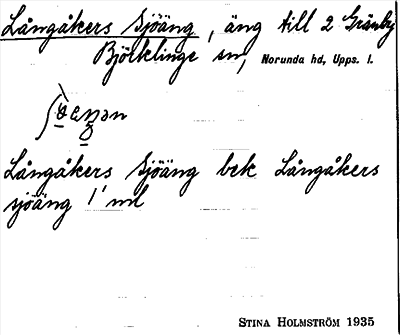 Långåkers sjöäng, äng till 2 Gränby
Björklinge sn, Norunda hd, Upps. l.
Långåkers sjöäng bek Långåkers
sjöäng 1' ml
STINA HOLMSTRÖM 1935